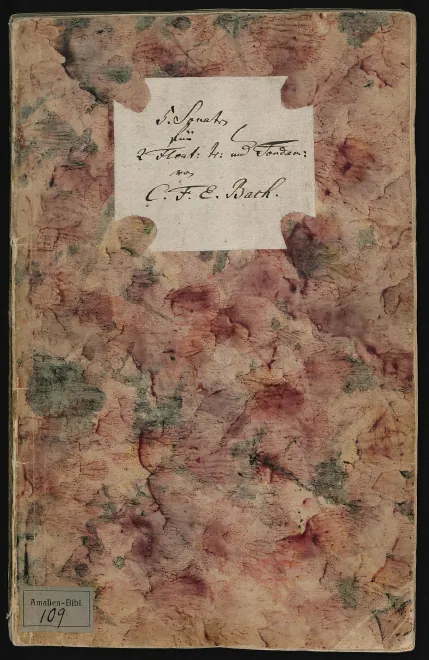 5. Sonaten
für
2 Flaut: tr: und Fondam:
von
C. F. E. Bach.
Amalien-Bibl.
109